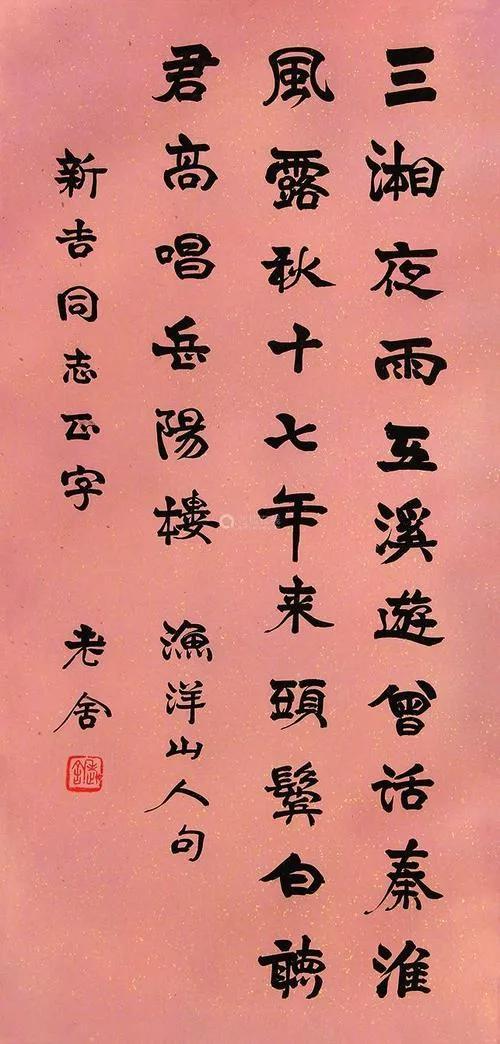 三湘夜雨五溪遊曾话秦淮
風露秋十七年来頭鬓白聽
君高唱岳陽樓 漁洋山人句
新吉同志正字 老舍
老舍